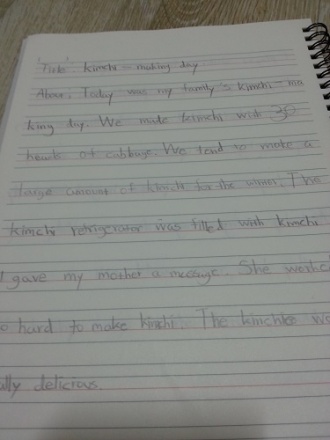 "Title" kimchi - making day
About, Today was my family's kimchi - ma
king day. We made kimchi with 30
heads of cabbage. We tend to make a
large amount of kimchi for the winter. The
kimchi refrigerator was filled with kimchi
I gave my mother a message. She worke
o hard to make kimchi. The kimchee wa
ally delicious.